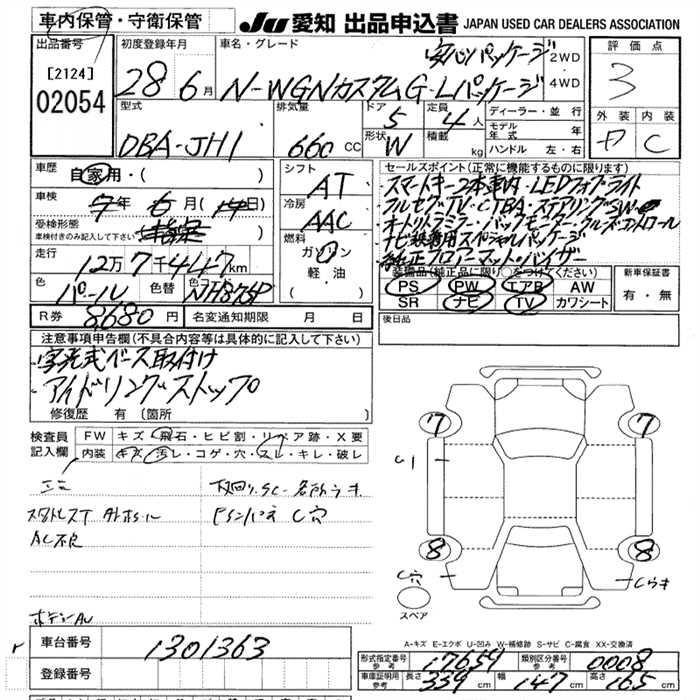 車内保管・守衛保管
JU 愛知 出品申込書 JAPAN USED CAR DEALERS ASSOCIATION
出品番号 初度登録年月 車名・グレード 評価点
[2124] 28 6月 N-WGNカスタムG・Lパッケージ 安心パッケージ 2WD・4WD 3
02054
型式 排気量 ドア 定員 ディーラー・並行 外装 内装
DBA-JH1 660 CC 5 4人 モデル年式 年 C
形状 W 積載 kg ハンドル 左・右
車歴 自家用・( ) シフト AT セールスポイント(正常に機能するものに限ります)
車検 7年 6月 (14日) 冷房 AAC スマートキー2本車内・LEDフォグライト
受検形態 フルセグTV・CTBA・ステアリングSW
車検付きのみ記入して下さい 燃料 ガソリン 軽油 オートリトラミラー・バックモニター・クルーズコントロール
走行 12万7千447km ナビ装着用スペシャルパッケージ
純正フロアーマット・バイザー
色 パール 色替 色コード NH875P 装備品(純正品に限り○をつけてください) 新車保証書
PS PW エアB AW 有・無
SR ナビ TV カワシート
R券 8,680円 名変通知期限 月 日 後日品
注意事項申告欄(不具合内容等は具体的に記入して下さい)
字光式ベース取付け
アイドリングストップ
修復歴 有 〔箇所 〕
検査員記入欄 FW キズ・飛石・ヒビ割・リペア跡・X要
内装 キズ・汚レ・コゲ・穴・スレ・キレ・破レ
7 7
C1
下回り サC
AC不良 C穴
8 8
C穴 Cウキ
スペア
ボデーAU
A-キズ E-エクボ U-凹み W-補修跡 S-サビ C-腐食 XX-交換済
車台番号 1301363 形式指定番号 参考 17659 類別区分番号 参考 0008
登録番号 車庫証明用 参考 長さ 339cm 幅 147cm 高さ 165cm